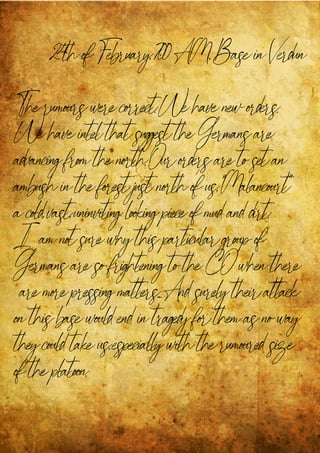 25th of February, 7:00 AM, Base in Verdun
The rumours were correct. We have new orders.
We have intel that suggest the Germans are
advancing from the north. Our orders are to set an
ambush in the forest just north of us. Malancourt
a cold, vast, uninviting looking piece of mud and dirt.
I am not sure why this particular group of
Germans are so frightening to the CO when there
are more pressing matters. And surely their attack
on this base would end in tragedy for them as no way
they could take us, especially with the rumoured size
of the platoon.